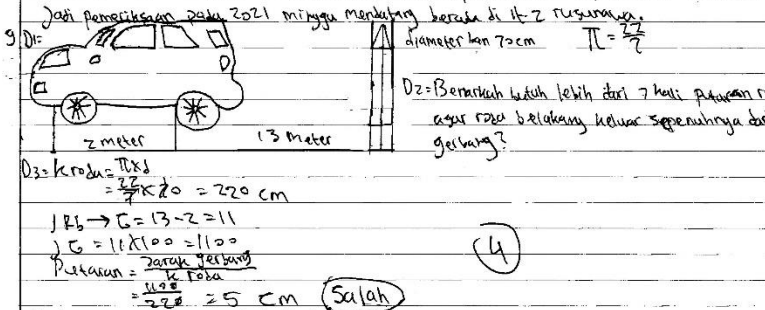 Jadi pemeriksaan pada 2021 minggu mendatang berada di lt-2 rusunawa.
9 D1=
diameter ban 70cm π = 22/7
2 meter 13 meter
D2= Benarkah butuh lebih dari 7 kali putaran r
agar roda belakang keluar sepenuhnya dar
gerbang?
D3= K roda = π x d
= 22/7 x 70 = 220 cm
J Rb → G = 13 - 2 = 11
J G = 11 x 100 = 1100
Putaran = Jarak gerbang / k roda
= 1100/220 = 5 cm Salah
4